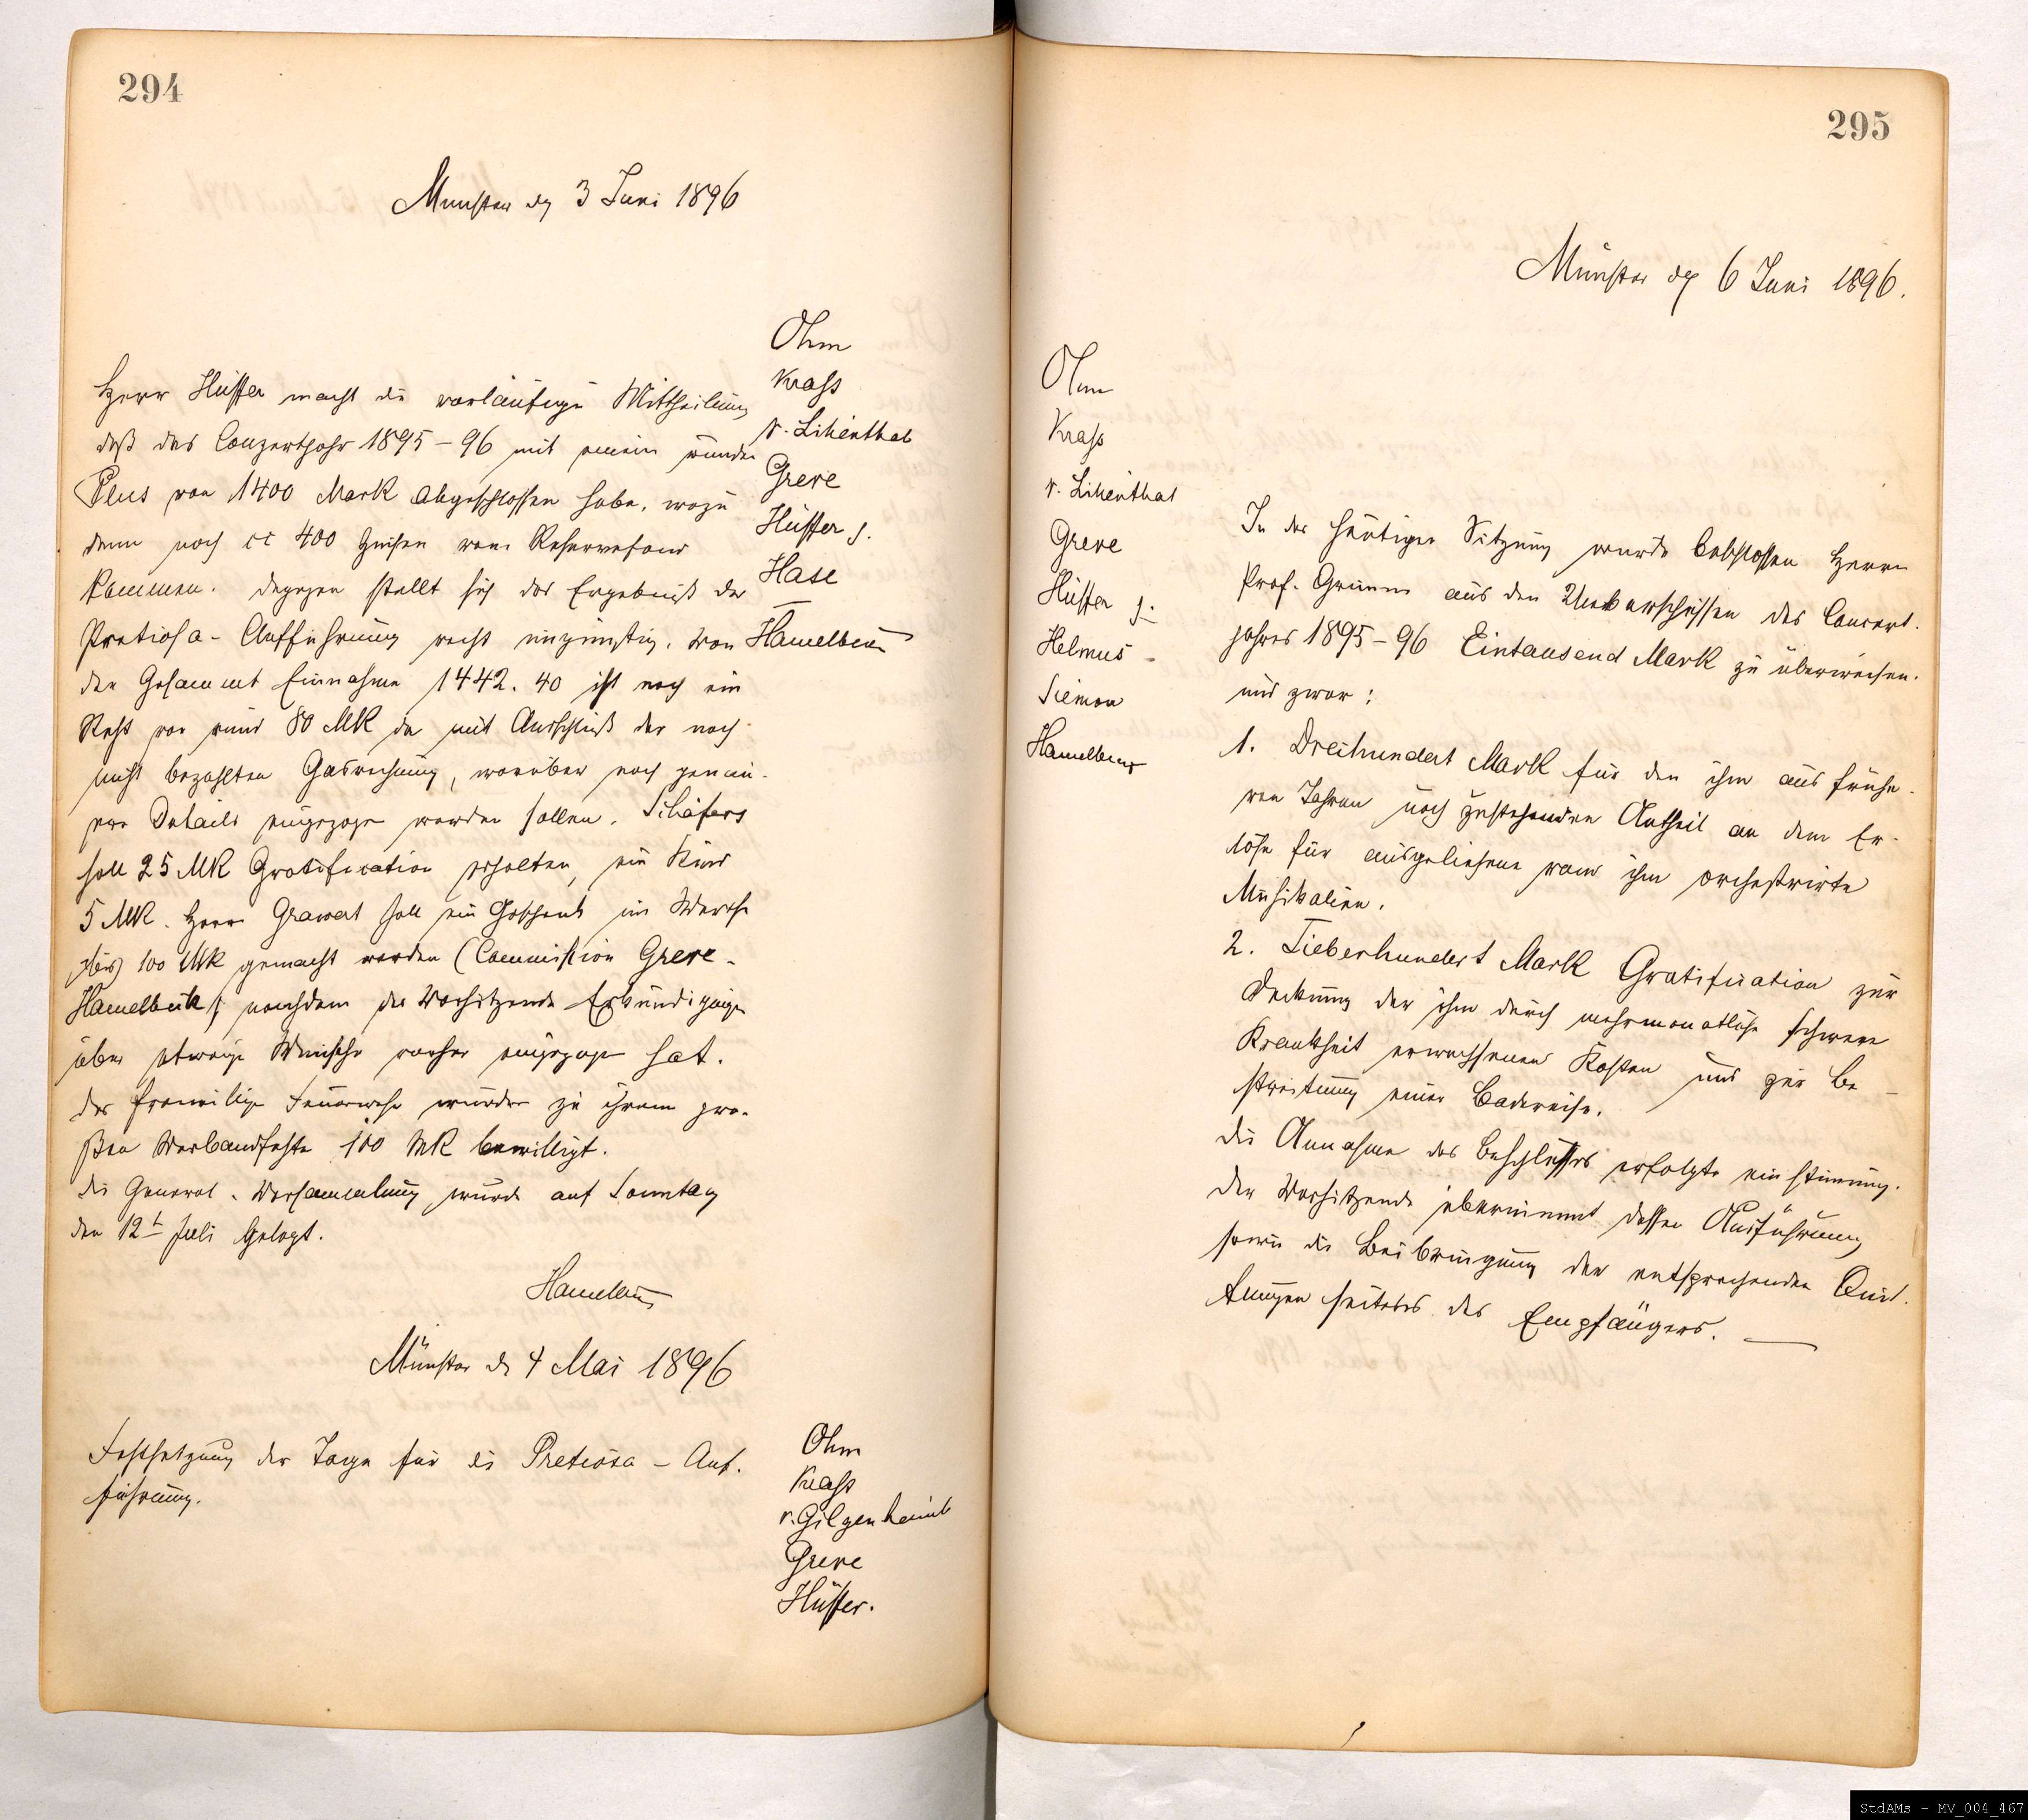 294
Münster dn 3 Juni 1896
Ohm
Krass
v. Lilienthal
Greve
Hüffer j.
Hase
Hamelbeck
Herr Hüffer macht die vorläufige Mittheilung
daß das Conzertjahr 1895-96 mit einem runden
Plus von 1400 Mark abgeschlossen habe, wozu
dann noch cc 400 Zinsen vom Reservefond
kommen. Dagegen stellt sich das Ergebniß der
Pretiosa-Aufführung recht ungünstig. Von
der Gesammt Einnahme 1442.40 ist noch ein
Rest von rund 80 MK da mit Ausschluß der noch
nicht bezahlten Gasrechnung, worüber noch genau-
ere Details eingezogen werden sollen. Schäfers
soll 25 MK Gratification erhalten, ein
5 MK. Herr Grawert soll ein Geschenk im Werthe
100 MK gemacht werden (Commission Greve-
Hamelbeck), nachdem der Vorsitzende Erkundigungen
über etwaige Wünsche vorher eingezogen hat.
Der freiwilligen Feuerwehr wurden zu ihrem gro-
ßen Verbandfeste 100 MK bewilligt.
Die General-Versammlung wurde auf Sonntag
den 12t Juli gelegt.
Hamelbeck
Münster dn 4 Mai 1896
Festsetzung der Tage für die Pretiosa-Auf-
führung.
Ohm
Krass
v. Gilgenheimb
Greve
Hüffer.
295
Münster dn 6 Juni 1896.
Ohm
Krass
v. Lilienthal
Greve
Hüffer j.
Helmus
Siemon
Hamelbeck
In der heutigen Sitzung wurde beschlossen Herrn
Prof. Grimm aus den Ueberschüssen des Concert-
jahres 1895-96 Eintausend Mark zu überweisen.
und zwar:
1. Dreihundert Mark für den ihm aus frühe-
ren Jahren noch zustehenden Antheil an dem Er-
löse für ausgeliehene von ihm orchestrirte
Musikalien.
2. Siebenhundert Mark Gratification zur
Deckung der ihm durch mehrmonatliche schwere
Krankheit erwachsenen Kosten und zur Be-
streitung einer Badereise.
Die Annahme des Beschlusses erfolgte einstimmig.
Der Vorsitzende übernimmt dessen Ausführung
sowie die Beibringung der entsprechenden Quit-
tungen seitens des Empfängers.
StdAMs - MV_004_467